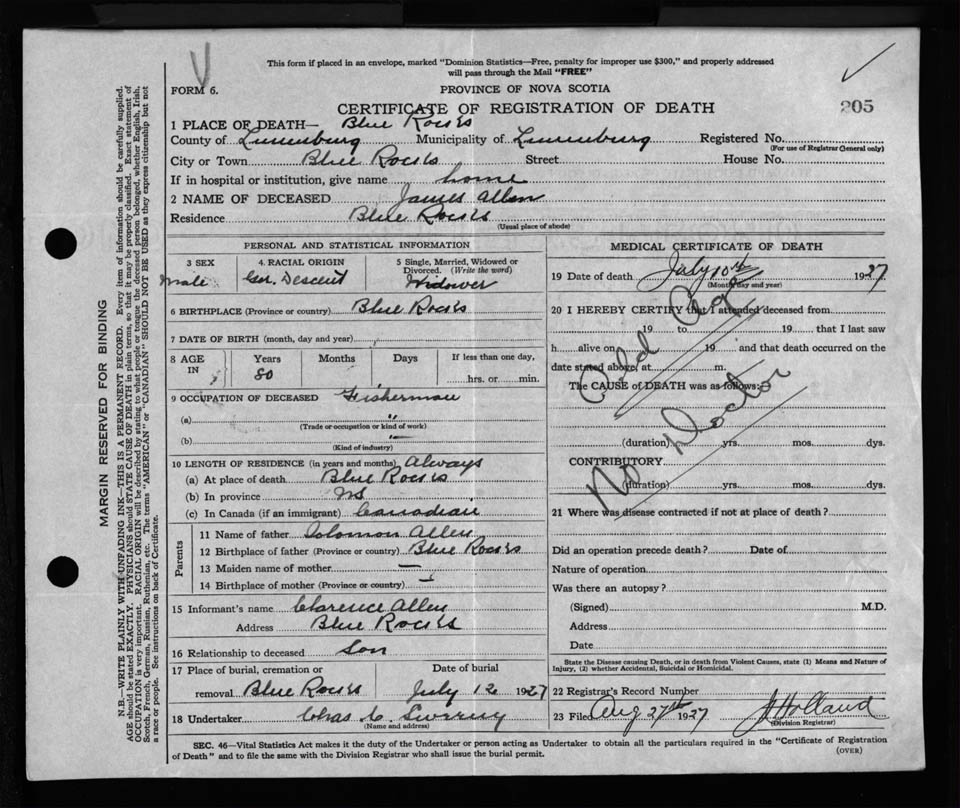 This form if placed in an envelope, marked "Dominion Statistics—Free, penalty for improper use $300," and properly addressed
will pass through the Mail "FREE"
FORM 6.
PROVINCE OF NOVA SCOTIA
CERTIFICATE OF REGISTRATION OF DEATH
205
1 PLACE OF DEATH— Blue Rocks
County of Lunenburg Municipality of Lunenburg Registered No.
(For use of Registrar General only)
City or Town Blue Rocks Street House No.
If in hospital or institution, give name home
2 NAME OF DECEASED James Allen
Residence Blue Rocks
(Usual place of abode)
PERSONAL AND STATISTICAL INFORMATION
3 SEX
Male
4. RACIAL ORIGIN
Ger. Descent
5 Single, Married, Widowed or
Divorced. (Write the word)
Widower
6 BIRTHPLACE (Province or country) Blue Rocks
7 DATE OF BIRTH (month, day and year)
8 AGE
IN
Years
80
Months
Days
If less than one day,
hrs. or min.
9 OCCUPATION OF DECEASED Fisherman
(a) "
(Trade or occupation or kind of work)
(b) —
(Kind of industry)
10 LENGTH OF RESIDENCE (in years and months) Always
(a) At place of death Blue Rocks
(b) In province NS
(c) In Canada (if an immigrant) Canadian
Parents
11 Name of father Solomon Allen
12 Birthplace of father (Province or country) Blue Rocks
13 Maiden name of mother —
14 Birthplace of mother (Province or country)
15 Informant's name Clarence Allen
Address Blue Rocks
16 Relationship to deceased Son
17 Place of burial, cremation or
removal Blue Rocks
Date of burial
July 12 1927
18 Undertaker Chas C.
(Name and address)
MEDICAL CERTIFICATE OF DEATH
19 Date of death July 10th 1927
(Month, day and year)
20 I HEREBY CERTIFY that I attended deceased from
19 to 19 that I last saw
h alive on 19 and that death occurred on the
date stated above, at m.
The CAUSE of DEATH was as follows:
Old Age
No Doctor
(duration) yrs. mos. dys.
CONTRIBUTORY
(duration) yrs. mos. dys.
21 Where was disease contracted if not at place of death?
Did an operation precede death? Date of
Nature of operation
Was there an autopsy?
(Signed) M.D.
Address
Date
State the Disease causing Death, or in death from Violent Causes, state (1) Means and Nature of
Injury, (2) whether Accidental, Suicidal or Homicidal.
22 Registrar's Record Number
23 Filed Aug 27th 1927 J Holland
(Division Registrar)
SEC. 46—Vital Statistics Act makes it the duty of the Undertaker or person acting as Undertaker to obtain all the particulars required in the "Certificate of Registration
of Death" and to file the same with the Division Registrar who shall issue the burial permit.
(OVER)
MARGIN RESERVED FOR BINDING
N.B.—WRITE PLAINLY WITH UNFADING INK—THIS IS A PERMANENT RECORD. Every item of information should be carefully supplied.
AGE should be stated EXACTLY. PHYSICIANS should STATE CAUSE OF DEATH in plain terms, so that it may be properly classified. Exact statement of
OCCUPATION is very important. RACIAL ORIGIN will be described by stating to what people or tongue the deceased person belonged, whether English, Irish,
Scotch, French, German, Russian, Ruthenian, etc. The terms "AMERICAN" or "CANADIAN" SHOULD NOT BE USED as they express citizenship but not
a race or people. See instructions on back of Certificate.